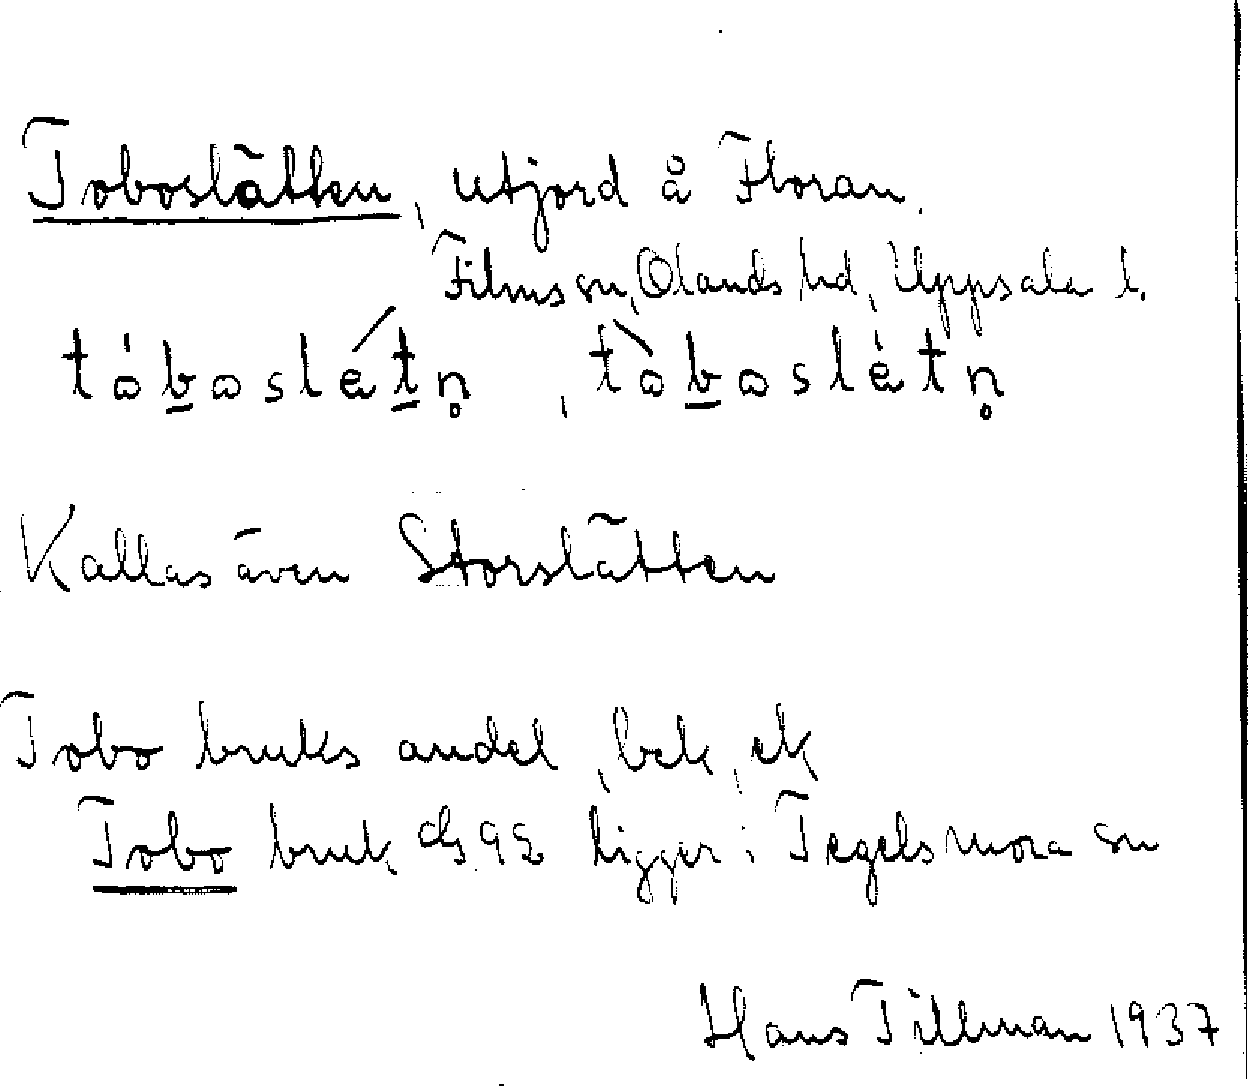 Toboslätten, utjord å Floran.
Films sn, Olands hd, Uppsala l.
tόboslétn̥, tòboslètn̥
Kallas även Storslätten
Tobo bruks andel, bek, ek
Tobo bruk ligger i Tegelsmora sn
Hans Tillman 1937